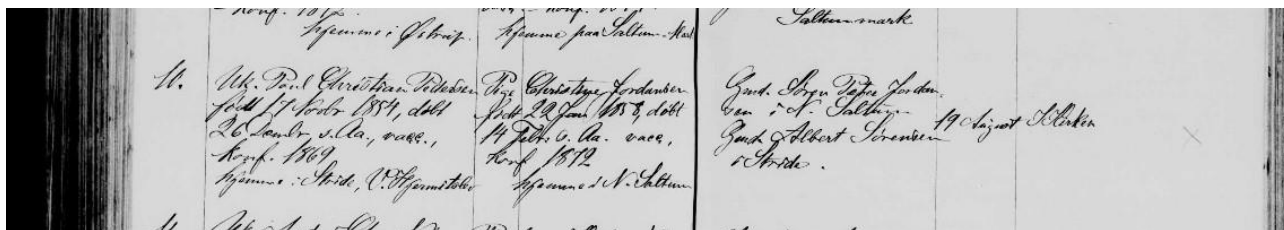 konf. 1872.
hjemme i Østrup.
konf.
hjemme paa Saltum-Mark
Saltum mark
10.
Uk. Poul Christian Pedersen
født 17 Novbr 1854, døbt
26 Decembr, s. Aa., vacc.,
konf. 1869
hjemme i Stride, V. Hjermitslev
Pige Christine Jordansen
født 22 Jan 1858, døbt
14 Febr. s. Aa. vacc,
konf 1872
hjemme i N. Saltum
Gmd. Søren Peter Jordan-
sen i N. Saltum
Gmd. Albert Sørensen
i Stride.
19 August
I Kirken